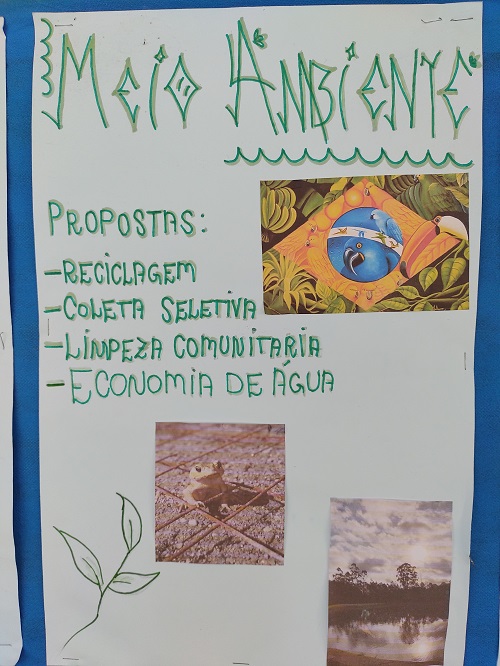 MEIO AMBIENTE
PROPOSTAS:
-RECICLAGEM
-COLETA SELETIVA
-LIMPEZA COMUNITARIA
-ECONOMIA DE ÁGUA